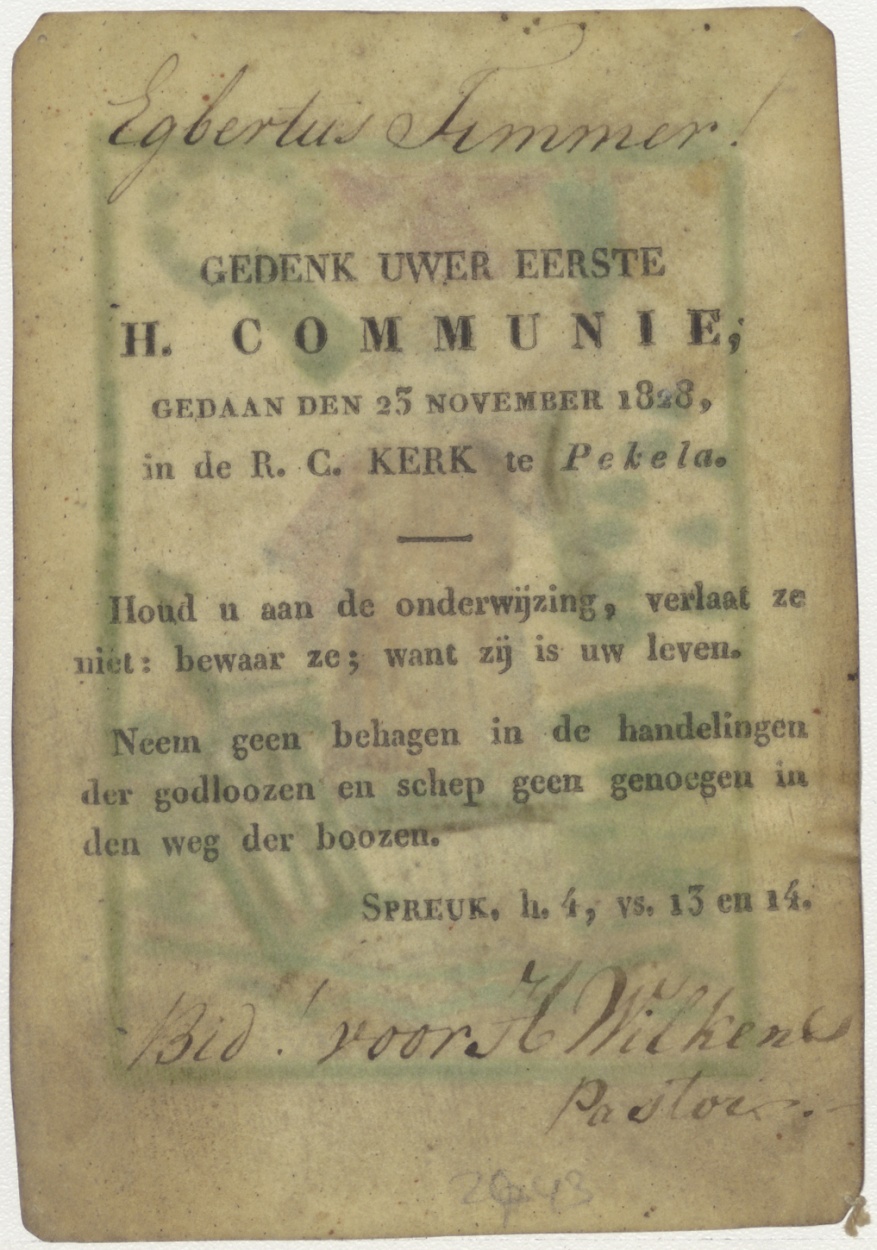 Egbertus Timmer!
GEDENK UWER EERSTE
H. COMMUNIE,
GEDAAN DEN 23 NOVEMBER 1828,
in de R. C. KERK te Pekela.
Houd u aan de onderwijzing, verlaat ze
niet: bewaar ze; want zij is uw leven.
Neem geen behagen in de handelingen
der godloozen en schep geen genoegen in
den weg der boozen.
SPREUK. h. 4, vs. 13 en 14.
Bid! voor H Wilkens
Pastoor.